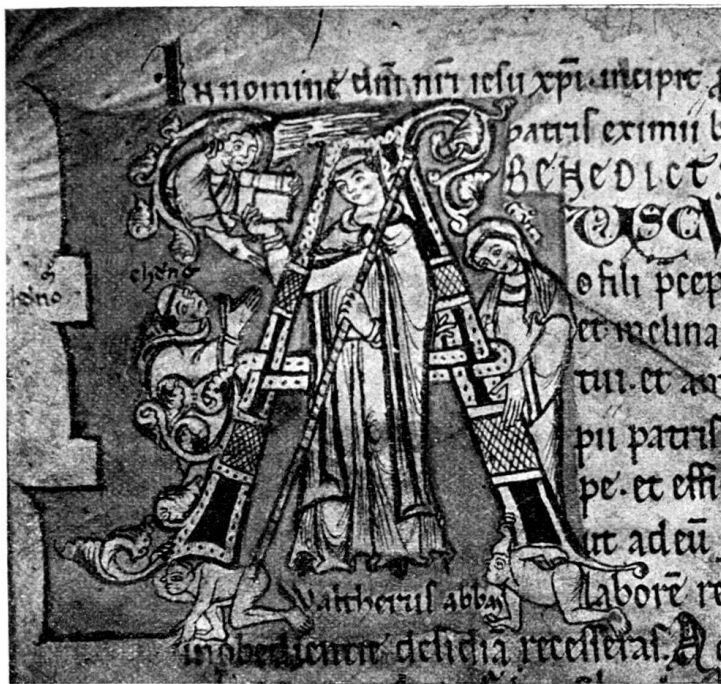 In nomine dñi nr̃i iesu xp̃i. incipit
patris eximii b
BENEDICT
AUSCV
o fili p̃cep
et inclina
tui. et am
pii patris
pe. et effi
ut ad eũ
Waltherus abbas
laborẽ re
inobediencie desidiã recesseras. A